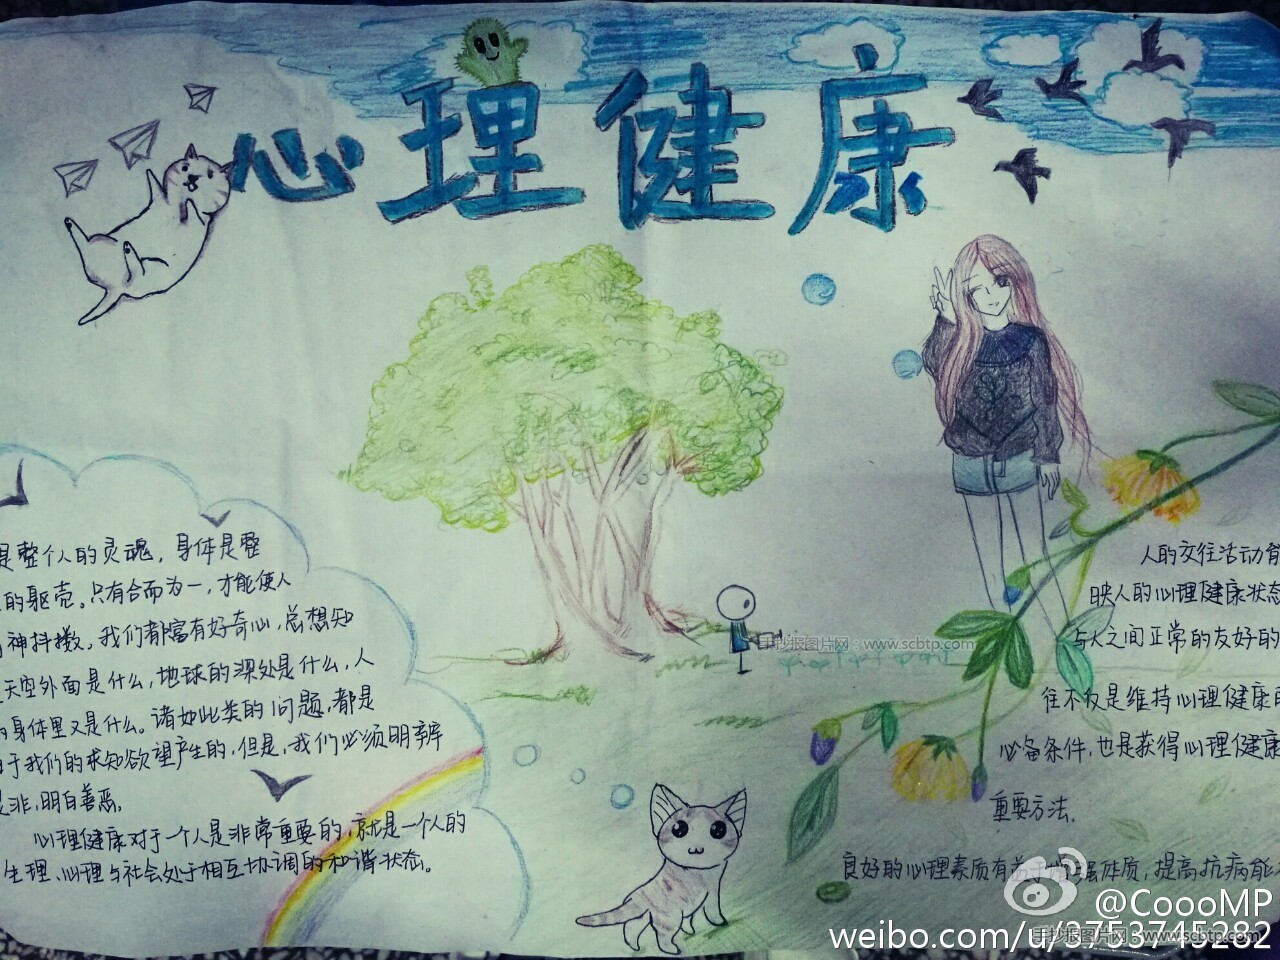 心理健康
是整个人的灵魂，身体是整
的躯壳。只有合而为一，才能使人
神抖擞。我们都富有好奇心，总想知
天空外面是什么，地球的深处是什么，人
的身体里又是什么。诸如此类的问题，都是
于我们的求知欲望产生的，但是，我们必须明辨
是非，明白善恶。
心理健康对于一个人是非常重要的，就是一个人的
生理、心理与社会处于相互协调的和谐状态。
人的交往活动能
映人的心理健康状态
与人之间正常的友好的
往不仅是维持心理健康的
必备条件，也是获得心理健康
重要方法。
良好的心理素质有益于增强体质，提高抗病能
手抄报图片网：www.scbtp.com
@CoooMP
weibo.com/u/3753745282
手抄报图片网：www.scbtp.com